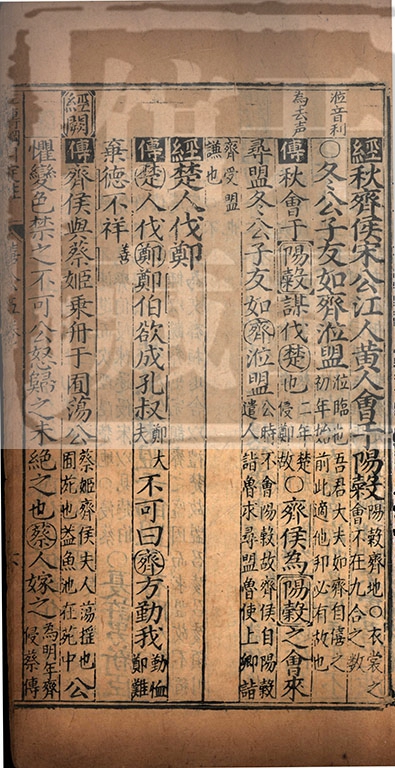 涖音利
經秋齊侯宋公江人黄人會于陽穀陽穀齊地〇衣裳之會不在九合之數
〇冬公子友如齊涖盟涖臨也吾君大夫如齊自僖之初年始前此適他邦必有故也
為去声
傳秋會于陽穀謀伐楚也二年楚侵鄭故〇齊侯為陽穀之會來
尋盟冬公子友如齊涖盟公時不會陽穀故齊侯自陽穀遣人詣魯求尋盟魯使上卿詣
齊受盟謙也
經楚人伐鄭
傳楚人伐鄭鄭伯欲成孔叔鄭大夫不可曰齊方動我勤恤鄭難
棄德不祥善
經闕
傳齊侯與蔡姬乗舟于囿蕩公蔡姬齊侯夫人蕩揺也囿苑也葢魚池在苑中公
懼變色禁之不可公怒歸之未絶之也蔡人嫁之為明年齊侵蔡傳